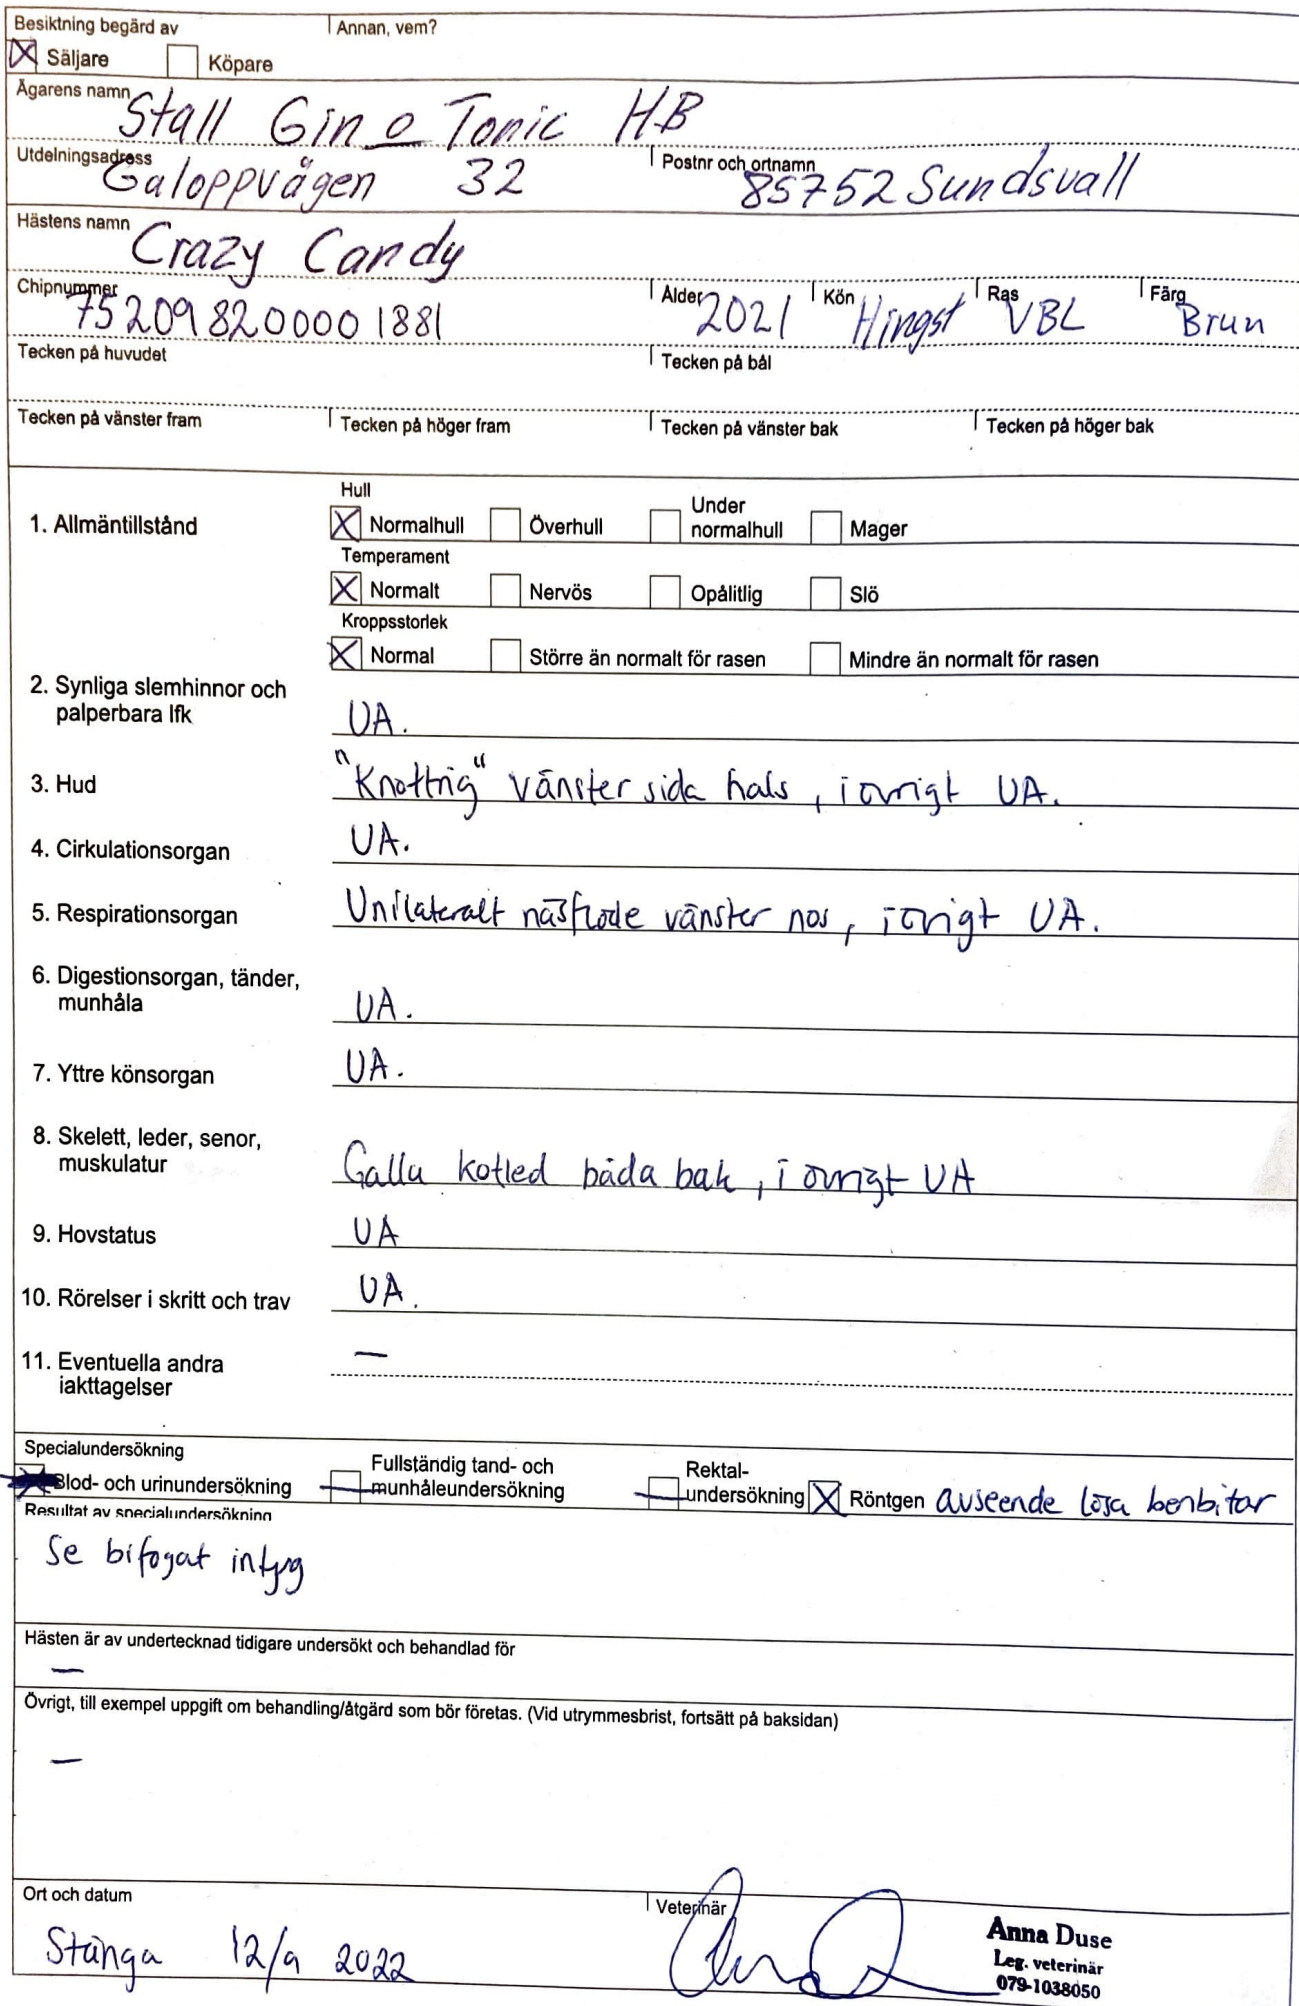 Besiktning begärd av Annan, vem?
Säljare Köpare
Ägarens namn Stall Gin o Tonic HB
Utdelningsadress Galoppvägen 32 Postnr och ortnamn 85752 Sundsvall
Hästens namn Crazy Candy
Chipnummer 752098200001881 Ålder 2021 Kön Hingst Ras VBL Färg Brun
Tecken på huvudet Tecken på bål
Tecken på vänster fram Tecken på höger fram Tecken på vänster bak Tecken på höger bak
Hull
1. Allmäntillstånd Normalhull Överhull Under normalhull Mager
Temperament
Normalt Nervös Opålitlig Slö
Kroppsstorlek
Normal Större än normalt för rasen Mindre än normalt för rasen
2. Synliga slemhinnor och
palperbara lfk UA.
3. Hud "Knottrig" vänster sida hals, i övrigt UA.
4. Cirkulationsorgan UA.
5. Respirationsorgan Unilateralt näsflöde vänster nos, i övrigt UA.
6. Digestionsorgan, tänder,
munhåla UA.
7. Yttre könsorgan UA.
8. Skelett, leder, senor,
muskulatur Galla kotled båda bak, i övrigt UA
9. Hovstatus UA
10. Rörelser i skritt och trav UA.
11. Eventuella andra —
iakttagelser
Specialundersökning
Blod- och urinundersökning Fullständig tand- och munhåleundersökning Rektal-undersökning Röntgen avseende lösa benbitar
Resultat av specialundersökning
Se bifogat intyg
Hästen är av undertecknad tidigare undersökt och behandlad för
—
Övrigt, till exempel uppgift om behandling/åtgärd som bör företas. (Vid utrymmesbrist, fortsätt på baksidan)
—
Ort och datum Veterinär
Stånga 12/9 2022
Anna Duse
Leg. veterinär
079-1038050